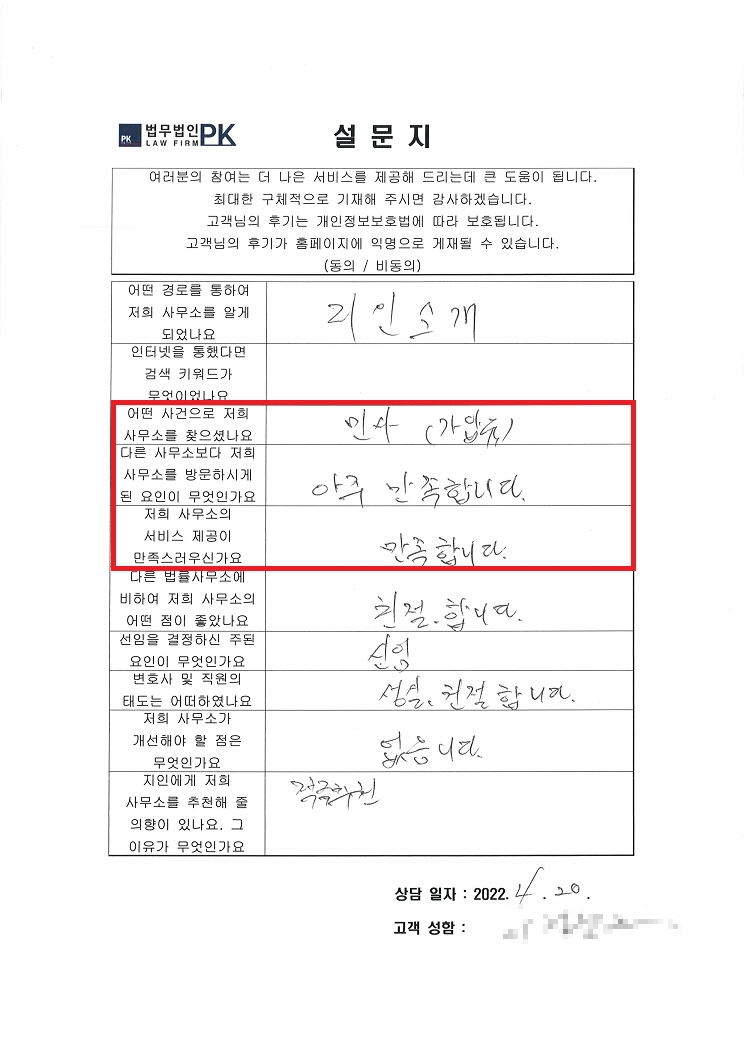 PK 법무법인PK
LAW FIRM
설문지
여러분의 참여는 더 나은 서비스를 제공해 드리는데 큰 도움이 됩니다.
최대한 구체적으로 기재해 주시면 감사하겠습니다.
고객님의 후기는 개인정보보호법에 따라 보호됩니다.
고객님의 후기가 홈페이지에 익명으로 게재될 수 있습니다.
(동의 / 비동의)
어떤 경로를 통하여
저희 사무소를 알게
되었나요
지인소개
인터넷을 통했다면
검색 키워드가
무엇이었나요
어떤 사건으로 저희
사무소를 찾으셨나요
민사 (가압류)
다른 사무소보다 저희
사무소를 방문하시게
된 요인이 무엇인가요
아주 만족합니다.
저희 사무소의
서비스 제공이
만족스러우신가요
만족합니다.
다른 법률사무소에
비하여 저희 사무소의
어떤 점이 좋았나요
친절.합니다.
선임을 결정하신 주된
요인이 무엇인가요
신임
변호사 및 직원의
태도는 어떠하였나요
성실, 친절합니다.
저희 사무소가
개선해야 할 점은
무엇인가요
없습니다.
지인에게 저희
사무소를 추천해 줄
의향이 있나요. 그
이유가 무엇인가요
적극추천
상담 일자 : 2022. 4. 20.
고객 성함 :